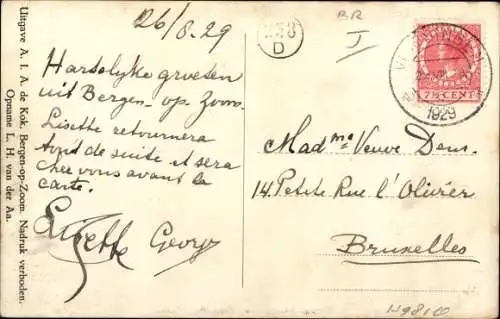 Uitgave A. I. A. de Kok, Bergen-op-Zoom. Nadruk verboden.
Opname L. H. van der Aa.
26/8.29
Hartelyke groesen
uit Bergen-op-Zoom.
Lisette retournera
tout de suite et sera
chez vous avant la
carte.
Lisette Georges
D
BR
I
7½ CENT
1929
Madme Veuve Dens.
14 Petite Rue l'Olivier
Bruxelles